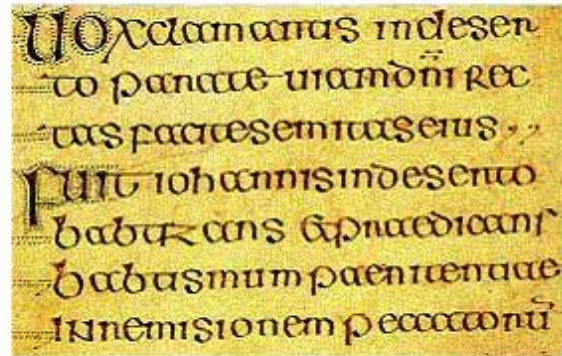 Uox clamantis in deser
to parate uiam dn̄i rec
tas facite semitas eius ,,
fuit iohannis in deserto
babtizans & praedicans
babtismum paenitentiae
in remisionem peccatorū